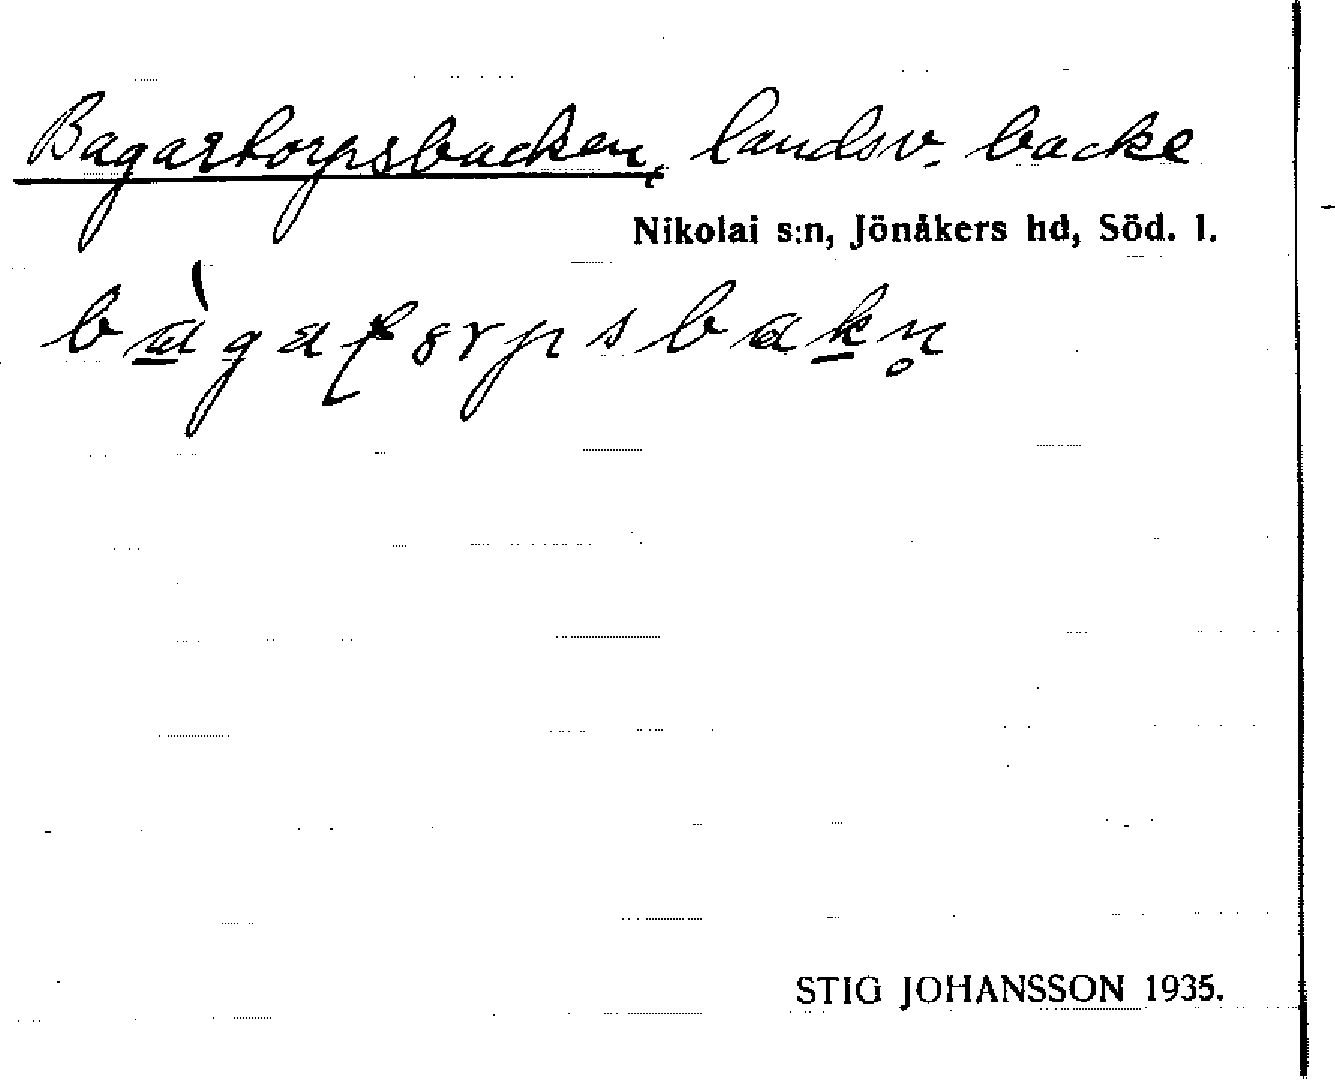 Bagartorpsbacken, landsv. backe
Nikolai s:n, Jönåkers hd, Söd. l.
STIG JOHANSSON 1935.